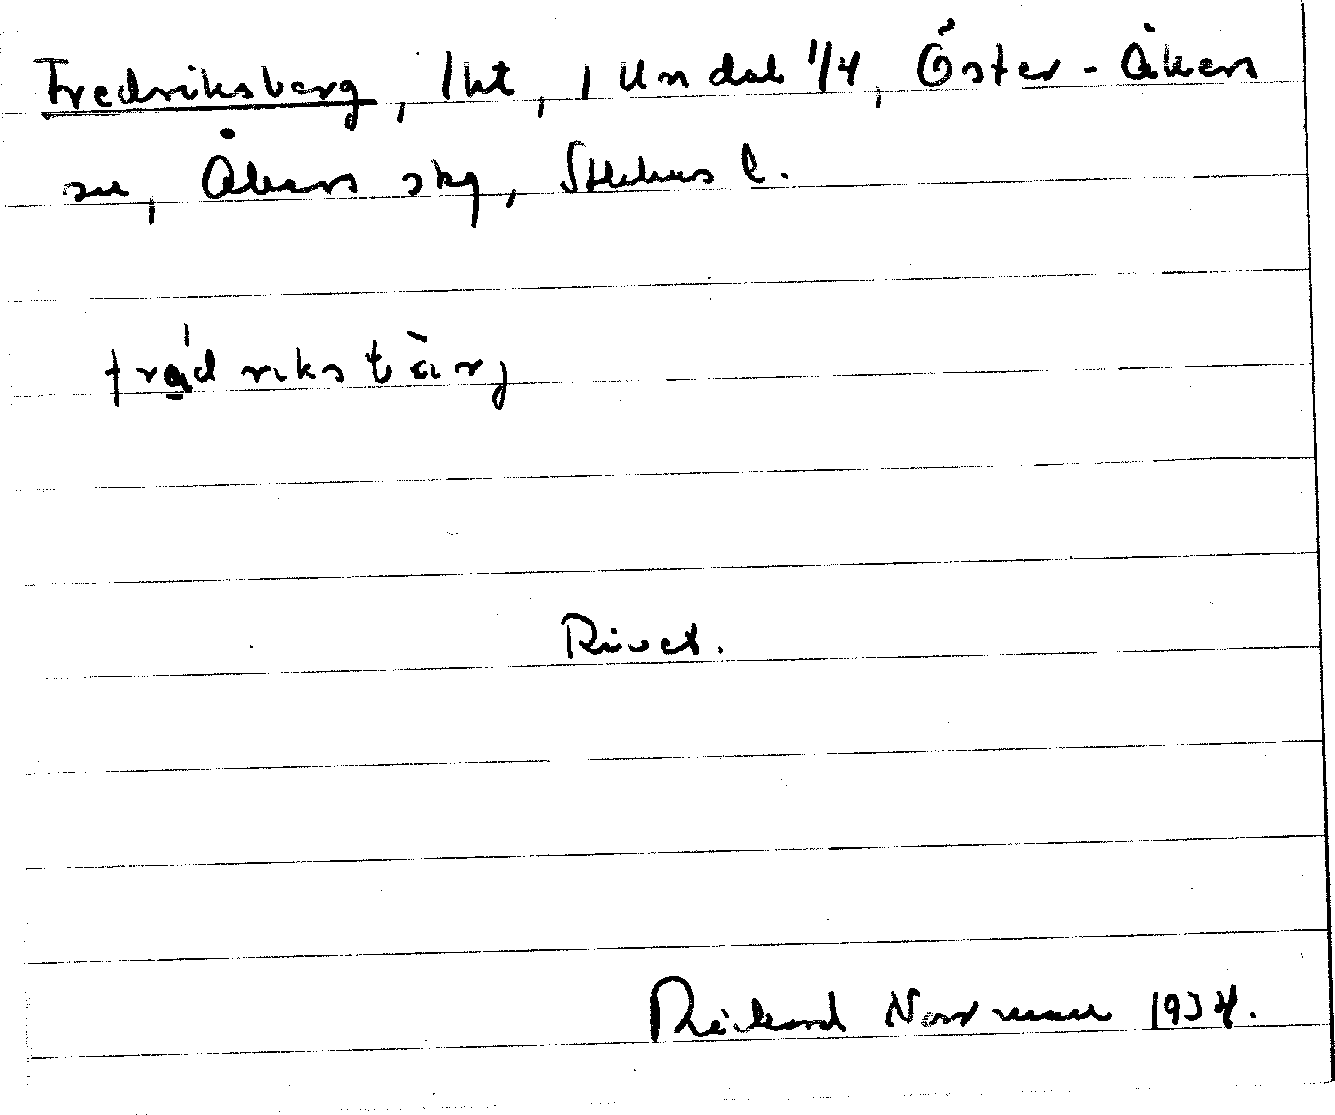 Fredriksberg, lht, 1 Undal 1/4, Öster-Åkers
sn, Åkers skg, Sthlms l.
Rivet.
Rickard Norrman 1934.